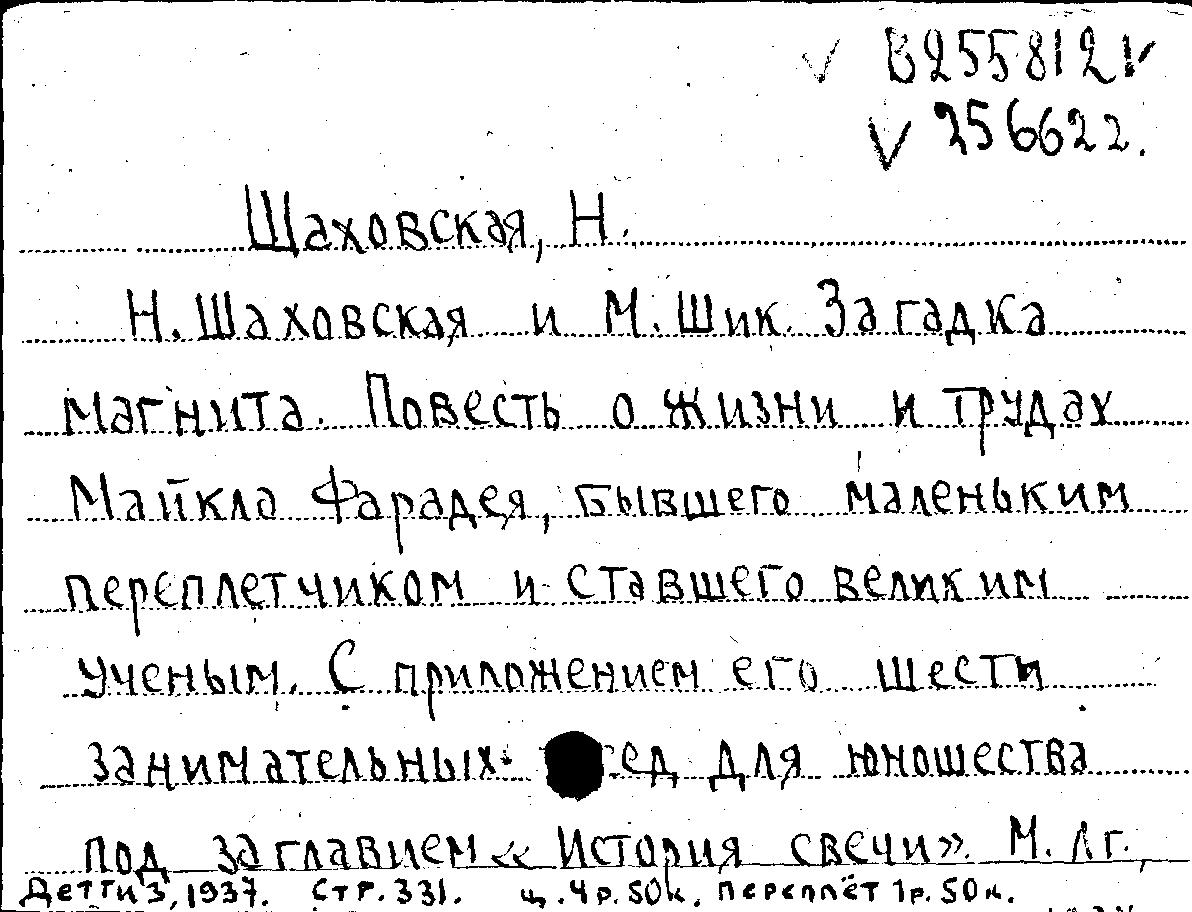 В255812
256622.
Шаховская, Н.
Н. Шаховская и М. Шик. Загадка
магнита. Повесть о жизни и трудах
Майкла Фарадея, бывшего маленьким
переплетчиком и ставшего великим
ученым. С приложением его шести
занимательных для юношества
под заглавием «История свечи». М. Лг.,
Детгиз, 1937. Стр. 331. ц. 4 р. 50 к. переплёт 1 р. 50 к.